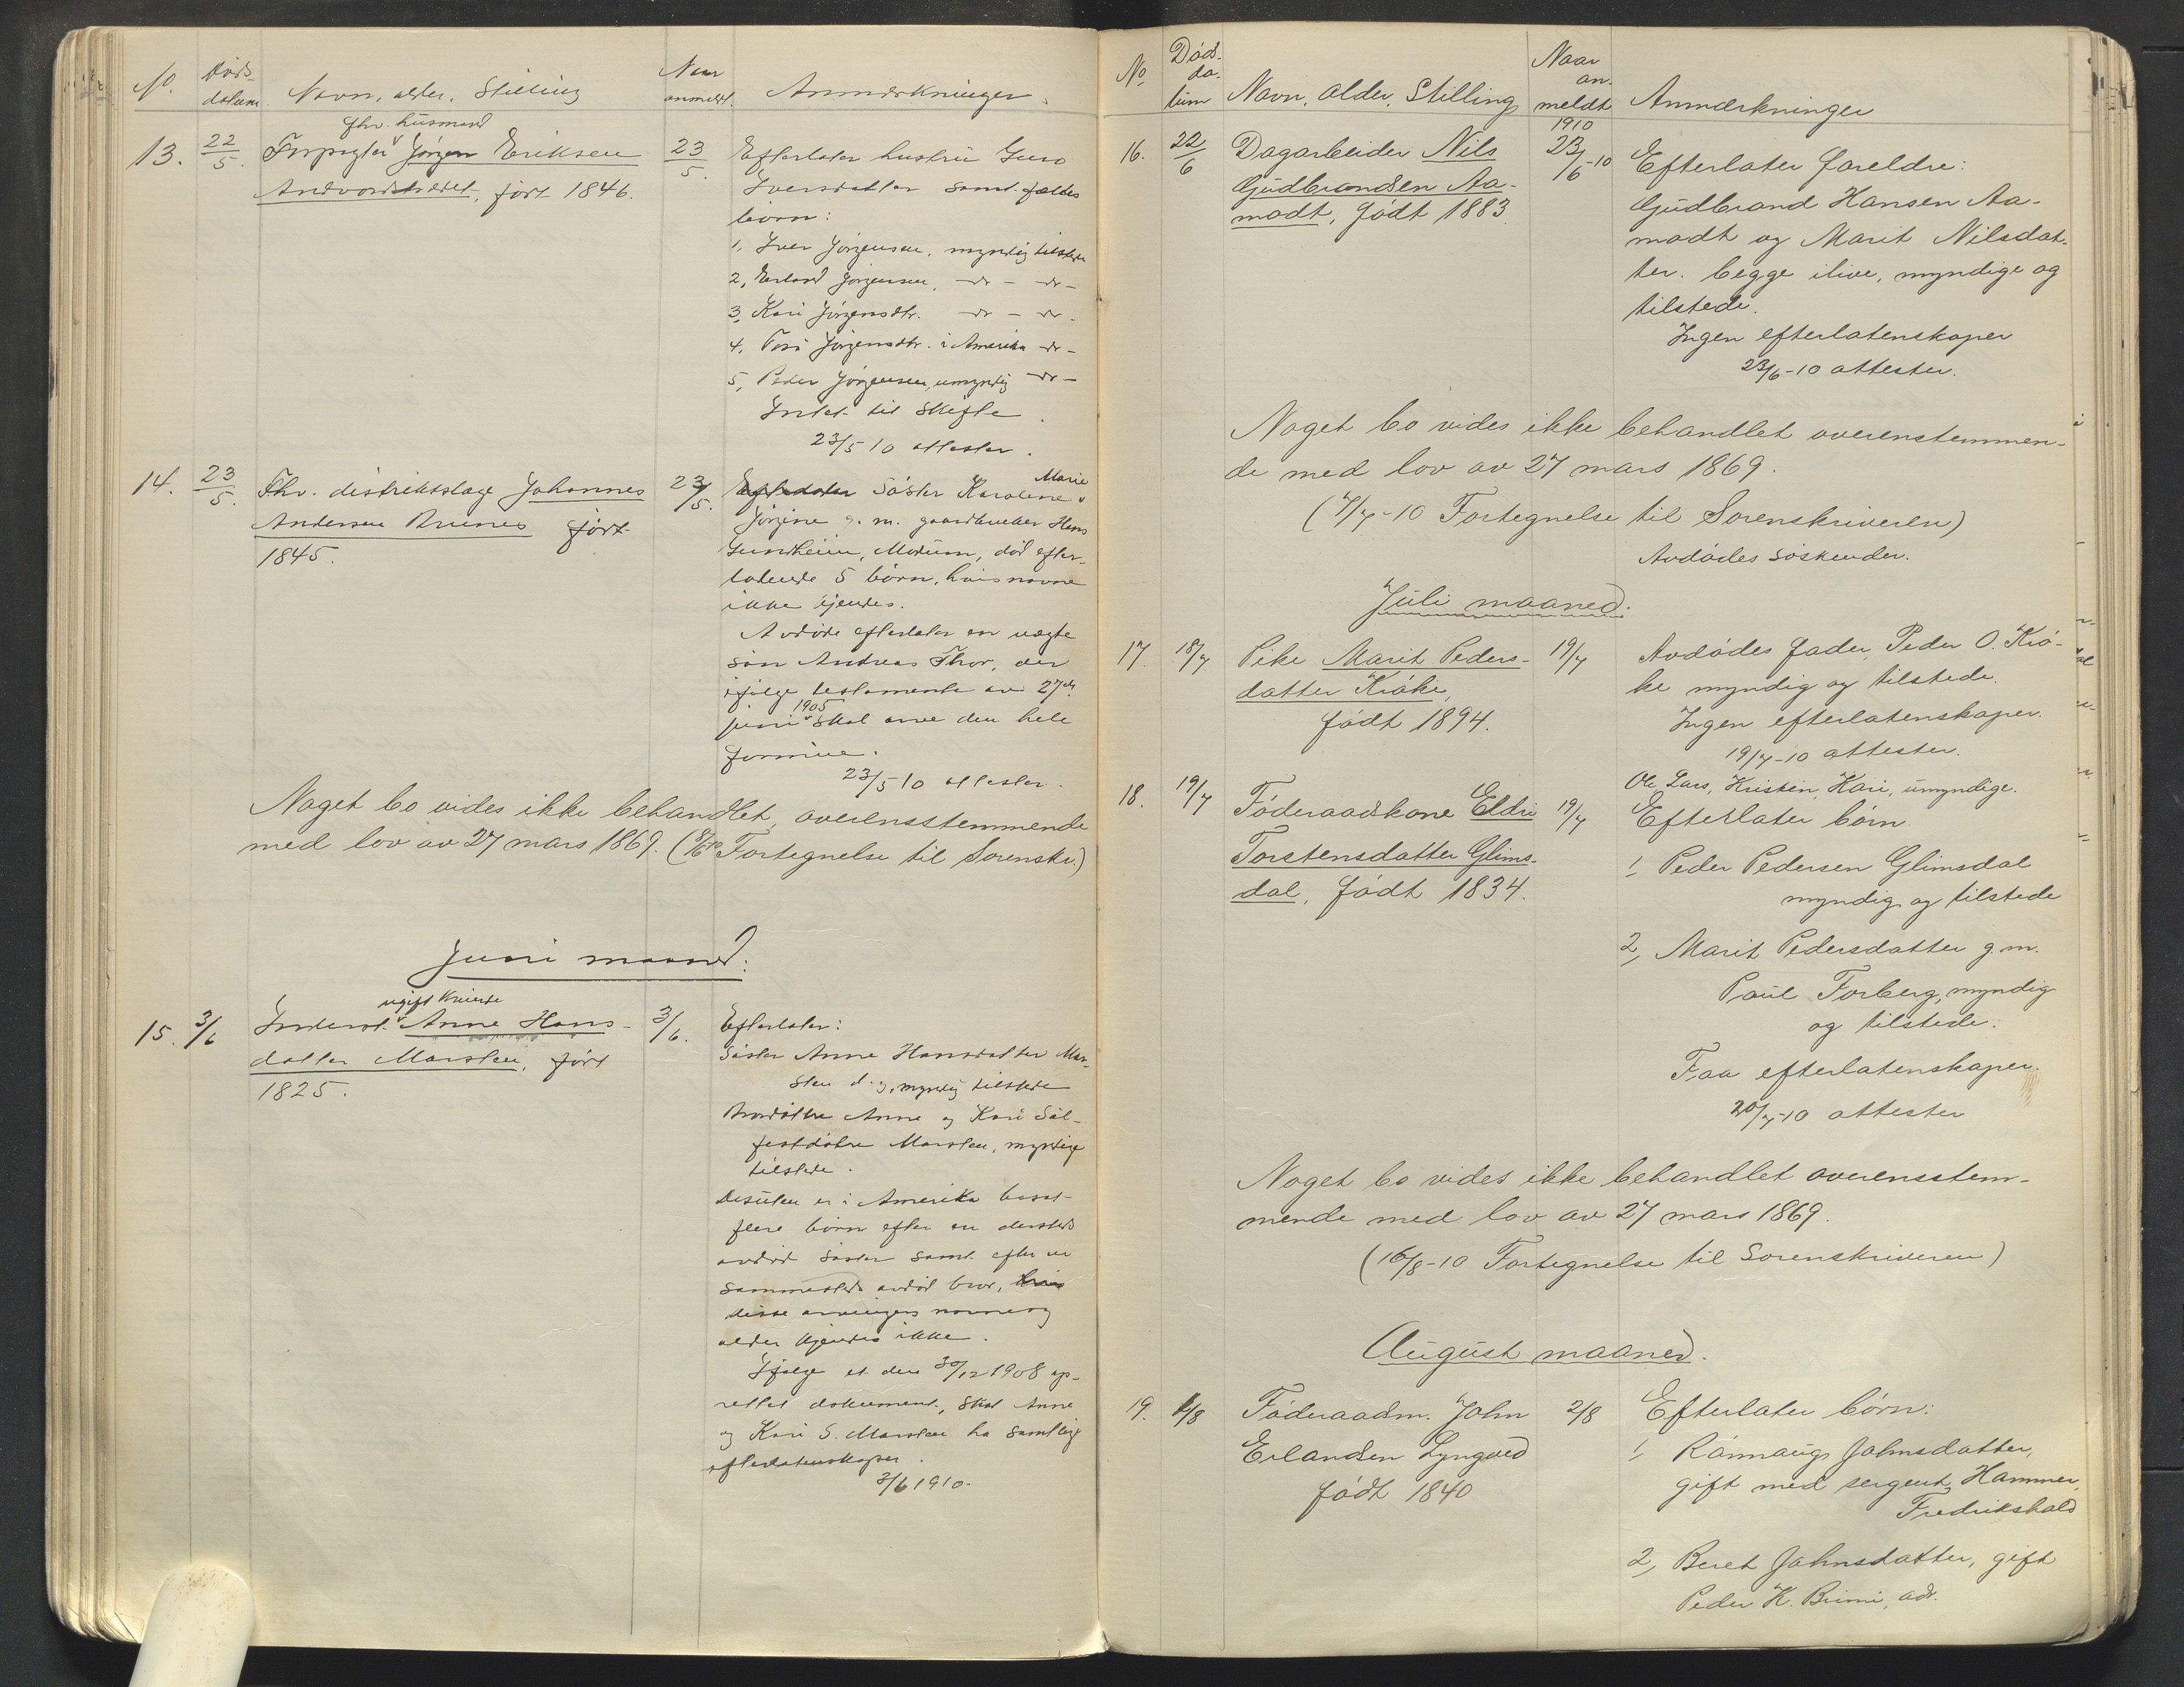 No. Døds- datum. Navn, alder, Stilling Naar anmeldt. Anmærkninger.
fhv. husmand
13. 22/5. Jørgen Eriksen 23/5.
Andvordstrædet, født 1846.
Efterlater hustru Guro
Iversdatter samt fælles
børn:
1, Iver Jørgensen, myndig tilstede
2, Erland Jørgensen, -do- -do-
3, Kari Jørgensdtr. -do- -do-
4, Jørgensdtr. i Amerika -do-
5, Peder Jørgensen, umyndig -do-
Intet til skifte.
23/5 10 attester.
14. 23/5. Fhv. distriktslæge Johannes
Andersen Brunes født
1845.
23/5. Efterlater søster Karoline Marie
Jørgine g. m. gaardbruker Hans
Gundheim, Modum, død efter-
latende 5 børn, hvis navne
ikke kjendes.
Avdøde efterlater en uægte
søn Andreas Thor, der
ifølge testamente av 27de
juni 1905 skal arve den hele
formue.
23/5 10 attester.
Noget bo vides ikke behandlet, overensstemmende
med lov av 27 mars 1869. (8/6 10 Fortegnelse til Sorenskr.)
Juni maaned:
ugift kvinde
15. 3/6 Inderst Anne Hans-
datter Marsteen, født
1825.
3/6. Efterlater:
Søster Anne Hansdatter Mar-
steen d. y, myndig tilstede
Brordøtre Anne og Kari Søl-
festdøtre Marsteen, myndige
tilstede.
Desuten er i Amerika bosat
flere børn efter en dersteds
avdød søster samt efter en
sammesteds avdød bror, hvis
disse arvingers navne og
alder kjendes ikke.
Ifølge et den 30/12 1908 op-
rettet dokument, skal Anne
og Kari S. Marsteen ha samtlige
efterlatenskaper.
3/6 1910.
No. Døds- da- tum Navn, Alder, Stilling Naar an- meldt Anmærkninger
1910
16. 22/6 Dagarbeider Nils 23/6-10
Gudbrandsen Aa-
modt, født 1883.
Efterlater foreldre:
Gudbrand Hansen Aa-
modt og Marit Nilsdat-
ter. begge ilive, myndige og
tilstede.
Ingen efterlatenskaper
23/6-10 attester.
Noget bo vides ikke behandlet overenstemmen-
de med lov av 27 mars 1869.
(7/7-10 Fortegnelse til Sorenskriveren)
Juli maaned.
Avdødes søskender.
17. 18/7 Pike Marit Peders- 19/7
datter Krøke,
født 1894.
Avdødes fader, Peder O. Krø-
ke myndig og tilstede.
Ingen efterlatenskaper.
19/7-10 attester.
Ole Lars, Kristen, Kari, umyndige.
18. 19/7 Føderaadskone Eldri 19/7
Torstensdatter Glims-
dal, født 1834.
Efterlater børn.
1, Peder Pedersen Glimsdal
myndig og tilstede
2, Marit Pedersdatter g. m.
Paul Forberg, myndig
og tilstede.
Faa efterlatenskaper.
20/7-10 attester
Noget bo vides ikke behandlet overensstem-
mende med lov av 27 mars 1869.
(16/8-10 Fortegnelse til Sorenskriveren)
August maaned.
19. 1/8 Føderaadm. John 2/8
Erlandsen Lyngved
født 1840
Efterlater børn:
1, Rønnaug Johnsdatter,
gift med sergent Hammer,
Fredrikshald
2, Beret Johnsdatter, gift
Peder K. Brimi, adr.